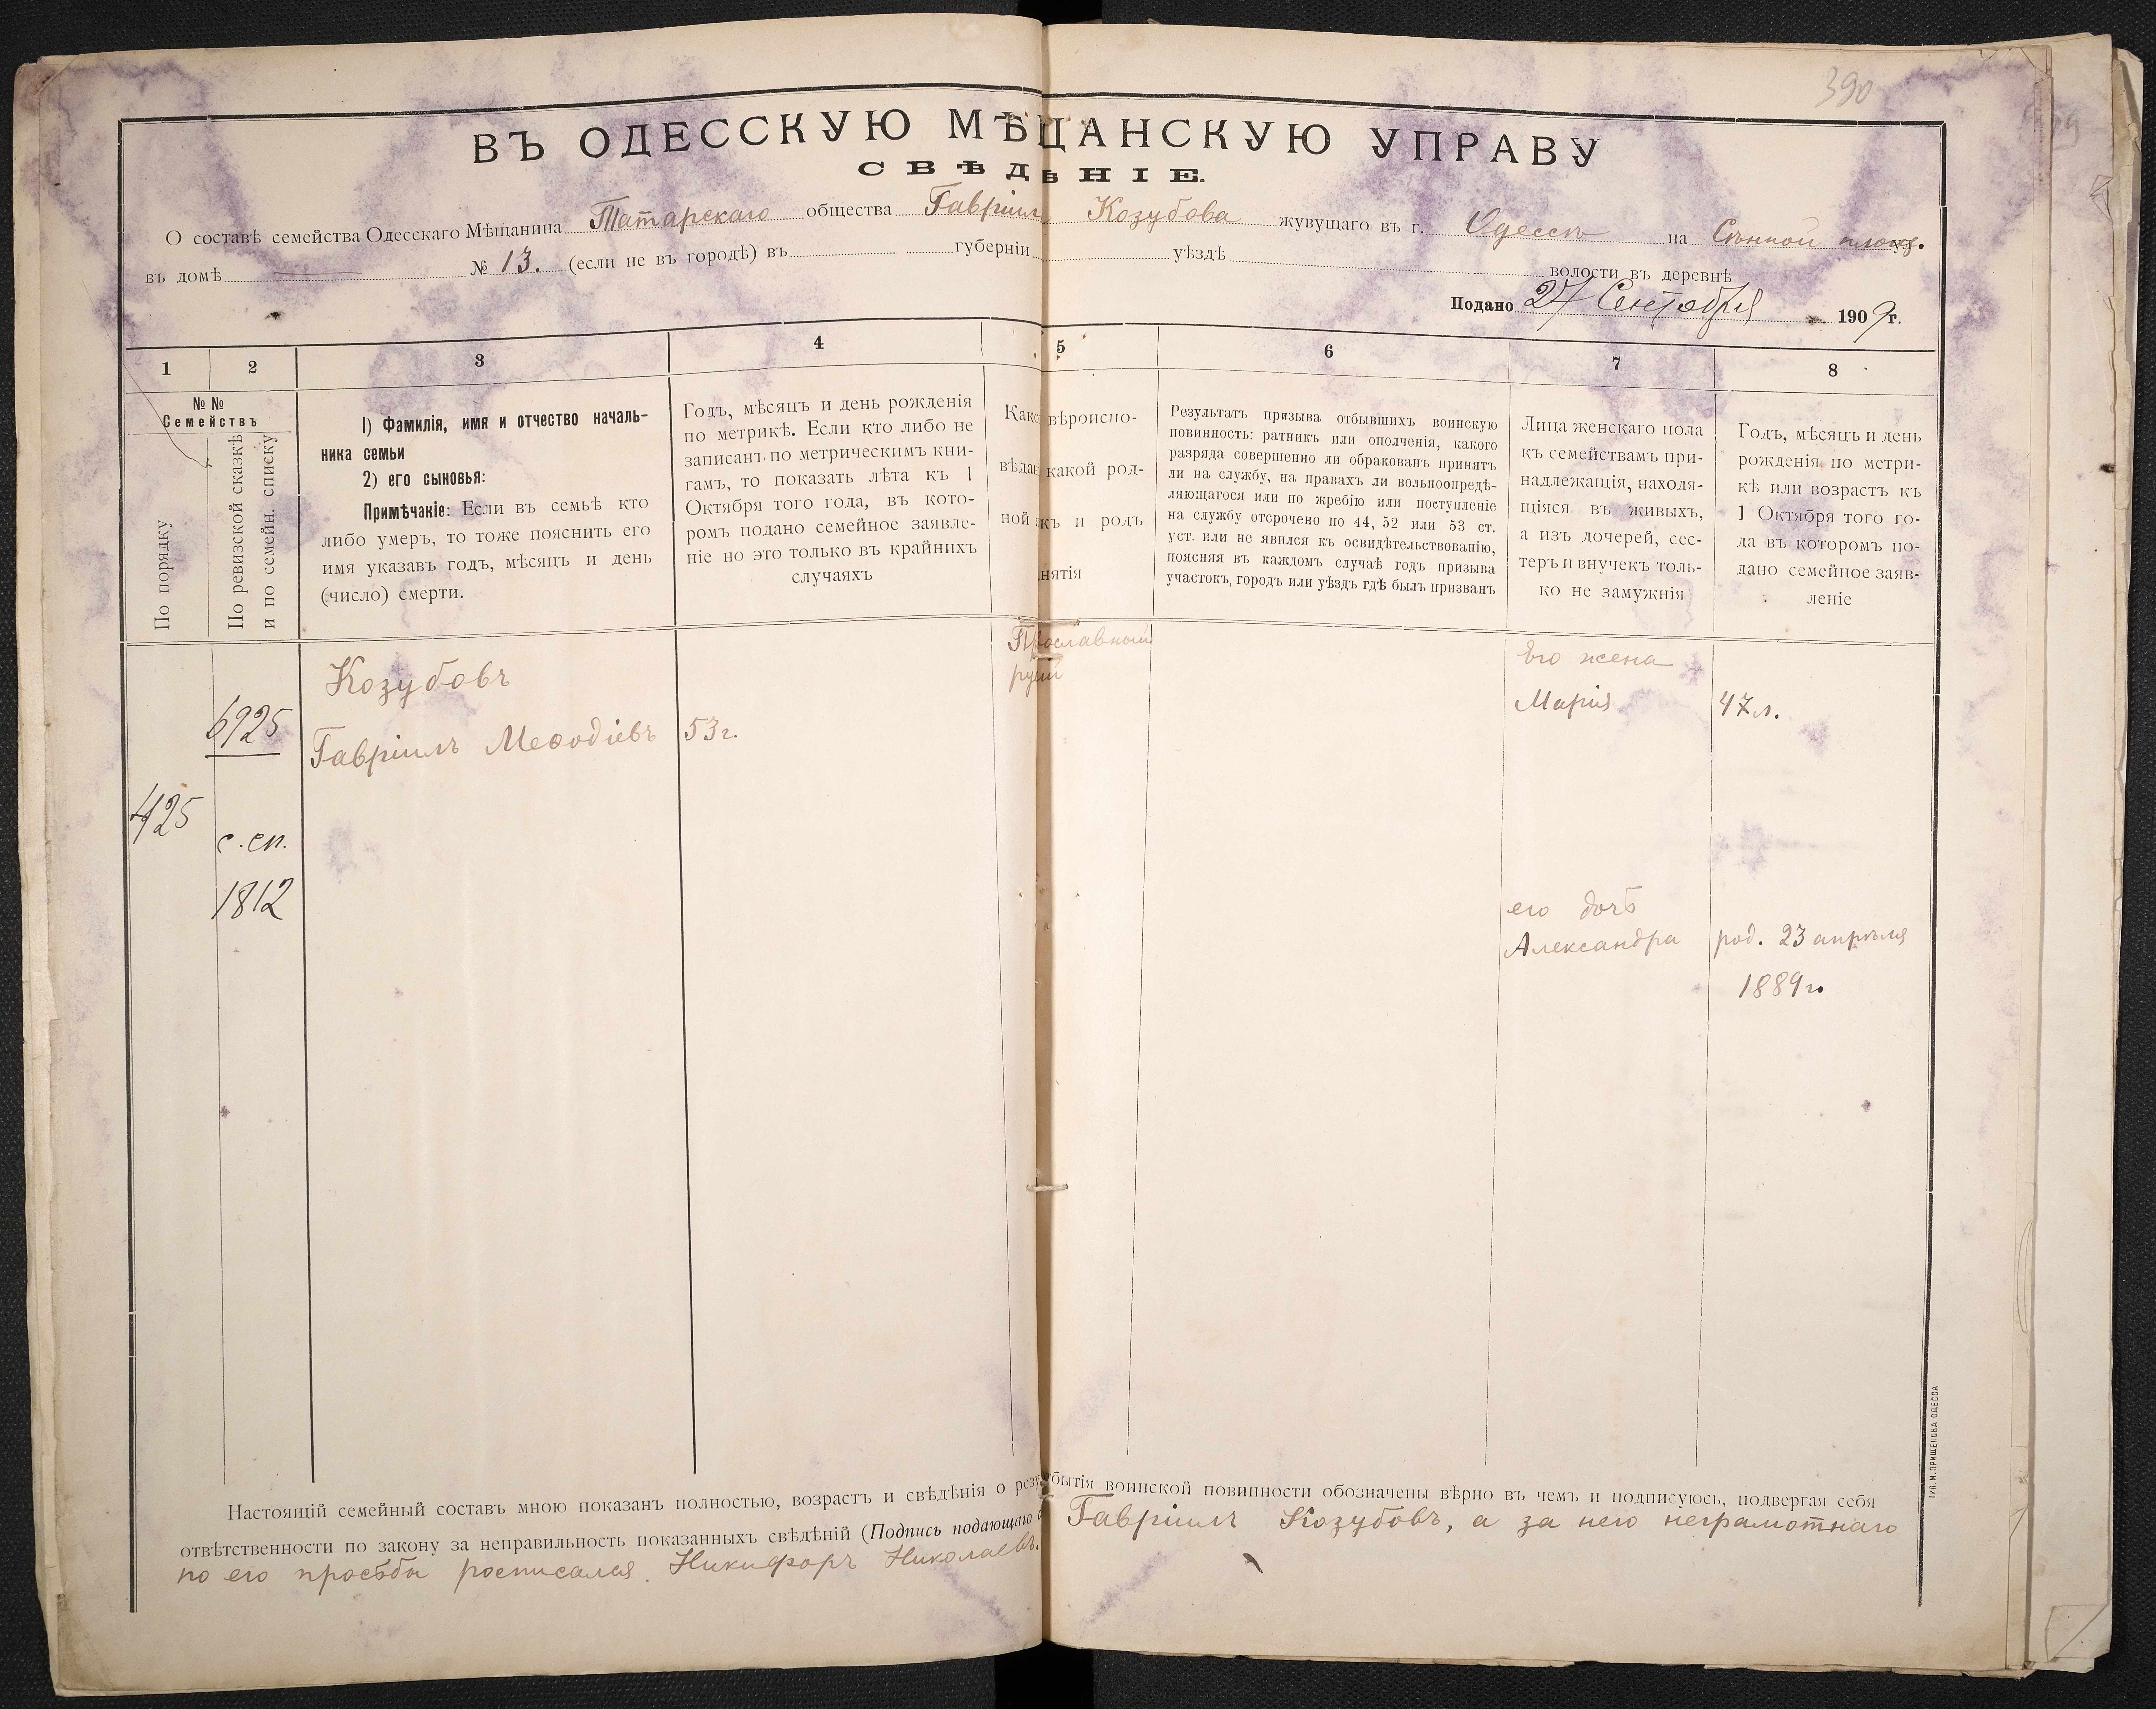 390
ВЪ ОДЕССКУЮ МѢЩАНСКУЮ УПРАВУ
СВѢДѢНІЕ.
О составѣ семейства Одесскаго Мѣщанина Татарскаго общества Гавріила Козубова жувущаго въ г. Одессѣ на Сѣнной площ.
въ домѣ № 13. (если не въ городѣ) въ губерніи уѣздѣ волости въ деревнѣ
Подано 27 Сентября 1909 г.
1 2 3 4 5 6 7 8
№ №
Семействъ
По порядку
По ревизской сказкѣ
и по семейн. списку
1) Фамилія, имя и отчество началь-
ника семьи
2) его сыновья:
Примѣчакіе: Если въ семьѣ кто
либо умеръ, то тоже пояснить его
имя указавъ годъ, мѣсяцъ и день
(число) смерти.
Годъ, мѣсяцъ и день рожденія
по метрикѣ. Если кто либо не
записанъ по метрическимъ кни-
гамъ, то показать лѣта къ 1
Октября того года, въ кото-
ромъ подано семейное заявле-
ніе но это только въ крайнихъ
случаяхъ
Како вѣроиспо-
вѣдан какой род-
ной якъ и родъ
нятія
Результатъ призыва отбывшихъ воинскую
повинность: ратникъ или ополченія, какого
разряда совершенно ли обракованъ принятъ
ли на службу, на правахъ ли вольноопредѣ-
ляющагося или по жребію или поступленіе
на службу отсрочено по 44, 52 или 53 ст.
уст. или не явился къ освидѣтельствованію,
поясняя въ каждомъ случаѣ годъ призыва
участокъ, городъ или уѣздъ гдѣ былъ призванъ
Лица женскаго пола
къ семействамъ при-
надлежащія, находя-
щіяся въ живыхъ,
а изъ дочерей, сес-
теръ и внучекъ толь-
ко не замужнія
Годъ, мѣсяцъ и день
рожденія по метри-
кѣ или возрастъ къ
1 Октября того го-
да въ которомъ по-
дано семейное заяв-
леніе
425
6925
с. сп.
1812
Козубовъ
Гавріилъ Меѳодіевъ
53 г.
Прославный
Его жена
Марія
47 л.
его дочь
Александра
род. 23 апрѣля
1889 г.
Настоящій семейный составъ мною показанъ полностью, возрастъ и свѣдѣнія о резу бытія воинской повинности обозначены вѣрно въ чемъ и подписуюсь, подвергая себя
отвѣтственности по закону за неправильность показанныхъ свѣдѣній (Подпись подающаго Гавріилъ Козубовъ, а за него неграмотнаго
по его просьбѣ росписался Никифоръ Николаевъ.
ТИП. М. ПРИЩЕПОВА ОДЕССА